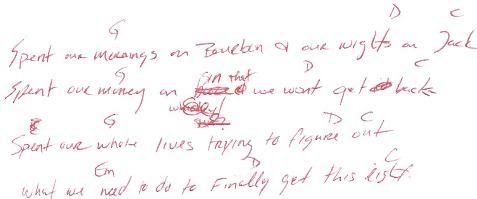 G D C
Spent our mornings on Bourbon & our nights on Jack
G sin that D C
Spent our money on we wont get back
G D C
Spent our whole lives trying to figure out
Em D C
what we need to do to Finally get this right.